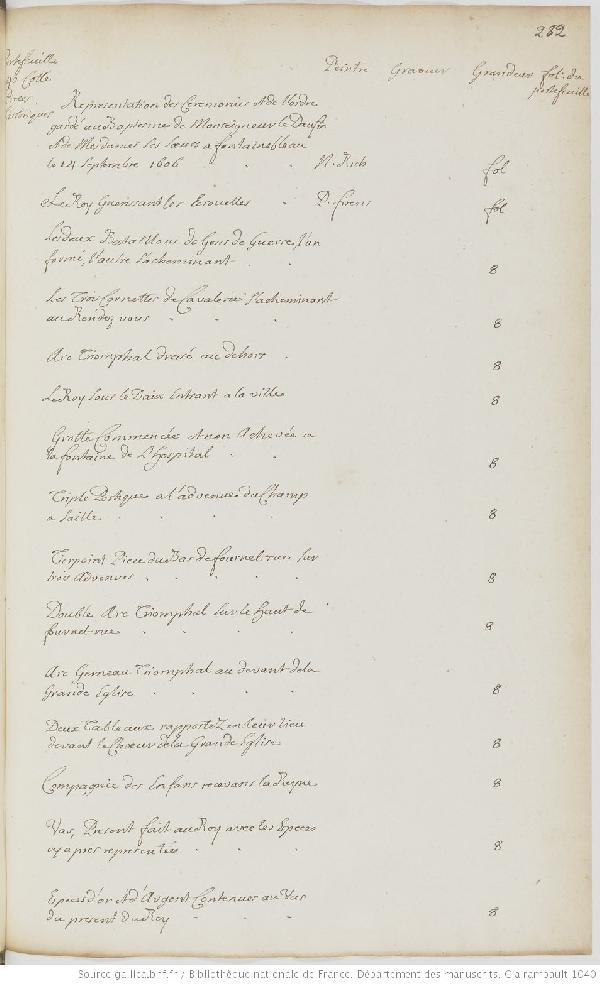 282
Portefeuille
Peintre Graveur Grandeur fol. du
portefeuille
Representation des Ceremonies & de l'ordre
gardé au Baptesme de Monseigneur le Daufin
& de Mesdames ses soeurs a fontainebleau
le 14 Septembre 1606 fol
Le Roy Guerissant les Escrouelles P. firens fol
Les deux Bataillons de Gens de Guerre, l'un
formé, l'autre s'acheminant 8
Les Trois Cornettes de Cavalerie s'acheminant
au Rendez vous 8
Arc Triomphal dressé au dehors 8
Le Roy sous le Daix Entrant a la ville 8
Grotte Commencée & non Achevée a
la fontaine de L'hospital 8
Triple Portique a l'advenue du Champ
a Saille 8
Tierpoint Piece du Bas de fournet rue sur
trois Advenues 8
Double Arc Triomphal sur le haut de
fournet rue 8
Arc Gemeau Triomphal au devant de la
Grande Eglise 8
Deux Tableaux rapportez en leur lieu
devant le Choeur de la Grande Eglise 8
Compagnie des Enfans recevans la Reyne 8
Vas, Present fait au Roy avec les Especes
cy apres representées 8
Especes d'or & d'Argent Contenues au Vas
du present du Roy 8
Source gallica.bnf.fr / Bibliothèque nationale de France. Département des manuscrits. Clairambault 1040